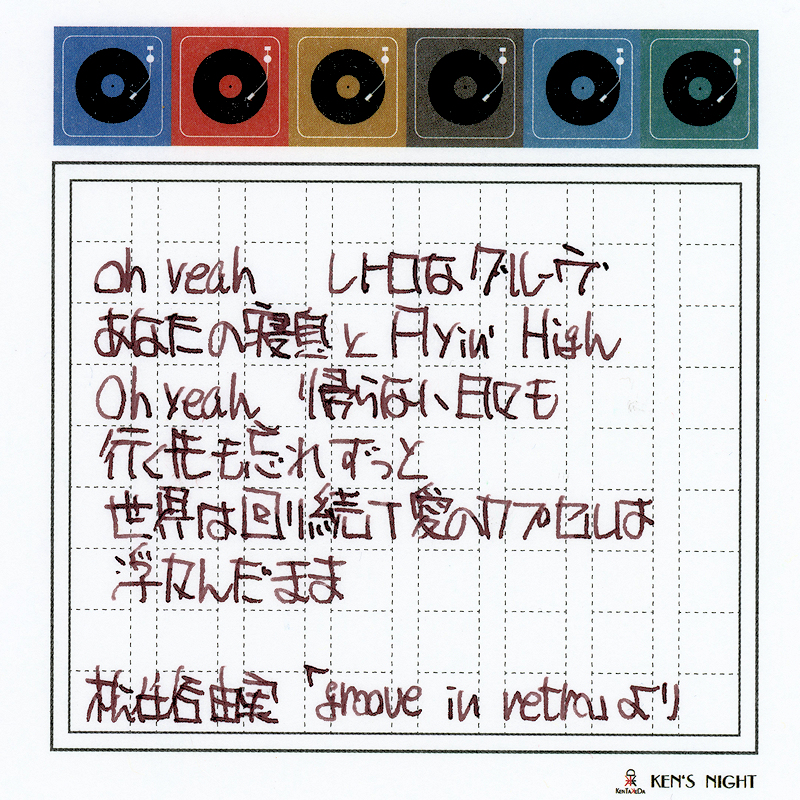 oh yeah レトロなグルーヴ
あなたの寝息と Flyin' High
Oh yeah 帰らない日々も
行く先も忘れずっと
世界は回り続けて愛のカプセルは
浮かんだまま
松任谷由実「groove in retro」より
KENTAKEDA KEN'S NIGHT